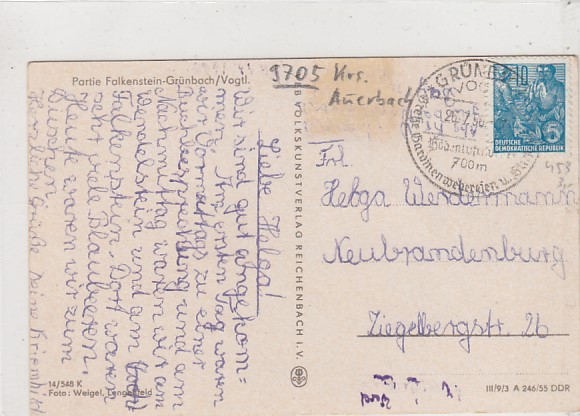 Partie Falkenstein-Grünbach/Vogtl.
Liebe Helga!
Wir sind gut angekom=
men. Am ersten Tag waren
wir Vormittags zu einer
Buchbesprechung und am
Nachmittag waren wir am
Wendelstein und am
Falkenstein. Dort waren
sehr viele Blaubeeren.
Heute waren wir zum
Duschen.
Herzliche Grüße deine Kriemhild
14/548 K
Foto: Weigel, Lengenfeld
VEB VOLKSKUNSTVERLAG REICHENBACH I. V.
9705 Krs.
Auerbach
GRÜNB
700m
Gardinenwebereien u.
10
5
DEUTSCHE
DEMOKRATISCHE REPUBLIK
Frl.
Helga Wendemann
Neubrandenburg
Ziegelbergstr. 26
III/9/3 A 246/55 DDR